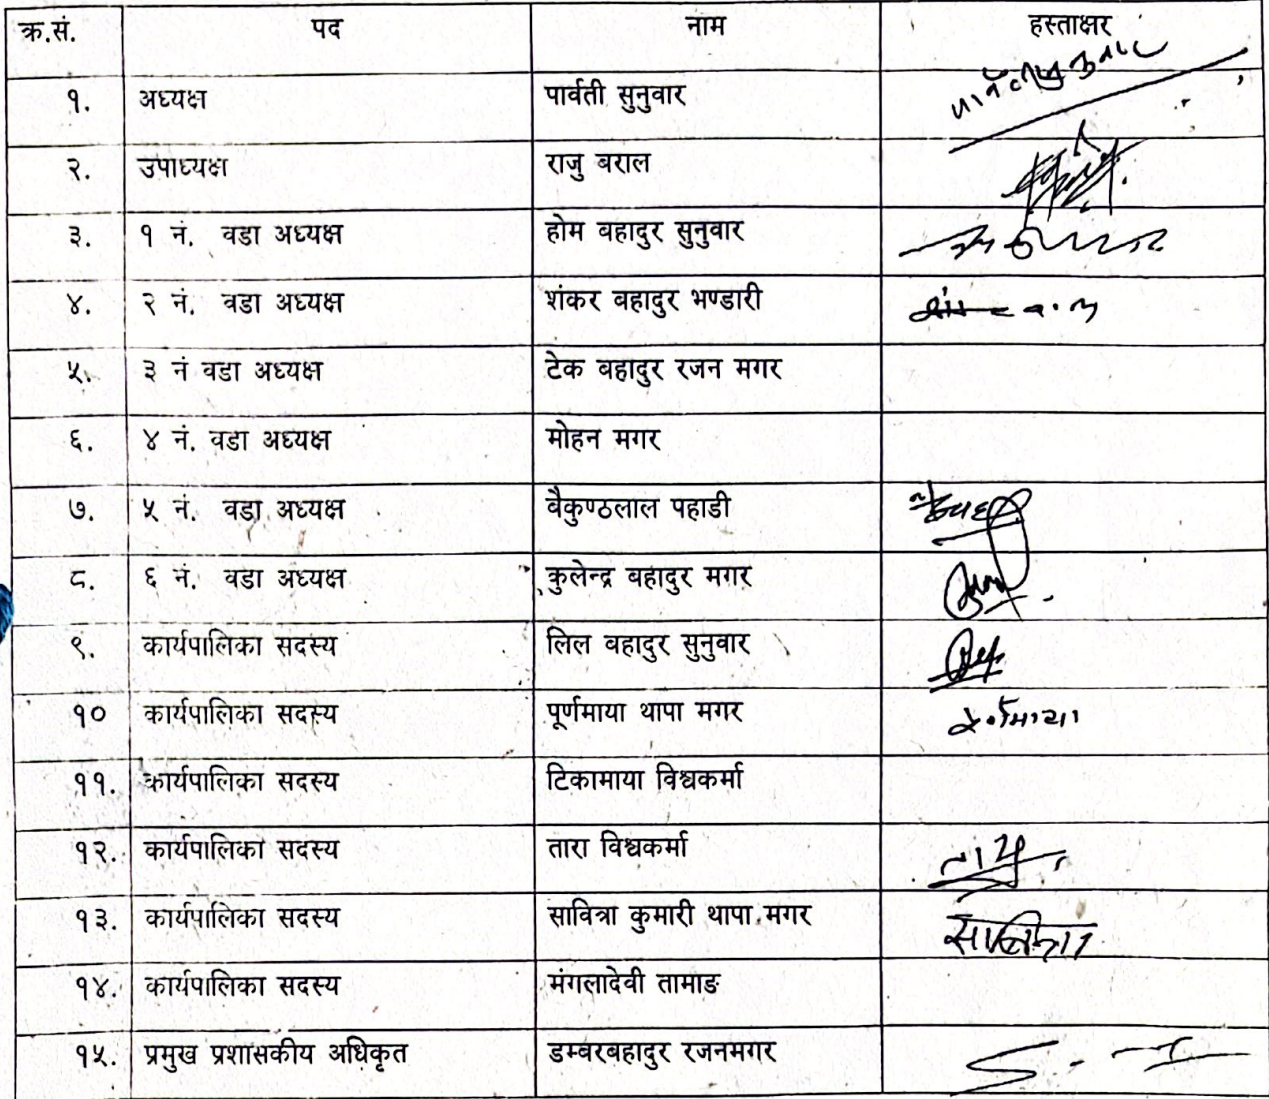 क्र.सं. पद नाम हस्ताक्षर
१. अध्यक्ष पार्वती सुनुवार
२. उपाध्यक्ष राजु बराल
३. १ नं. वडा अध्यक्ष होम बहादुर सुनुवार
४. २ नं. वडा अध्यक्ष शंकर बहादुर भण्डारी
५. ३ नं वडा अध्यक्ष टेक बहादुर रजन मगर
६. ४ नं. वडा अध्यक्ष मोहन मगर
७. ५ नं. वडा अध्यक्ष बैकुण्ठलाल पहाडी
८. ६ नं. वडा अध्यक्ष कुलेन्द्र बहादुर मगर
९. कार्यपालिका सदस्य लिल बहादुर सुनुवार
१० कार्यपालिका सदस्य पूर्णमाया थापा मगर
११. कार्यपालिका सदस्य टिकामाया विश्वकर्मा
१२. कार्यपालिका सदस्य तारा विश्वकर्मा
१३. कार्यपालिका सदस्य सावित्रा कुमारी थापा मगर सावित्रा
१४. कार्यपालिका सदस्य मंगलादेवी तामाङ
१५. प्रमुख प्रशासकीय अधिकृत डम्बरबहादुर रजनमगर